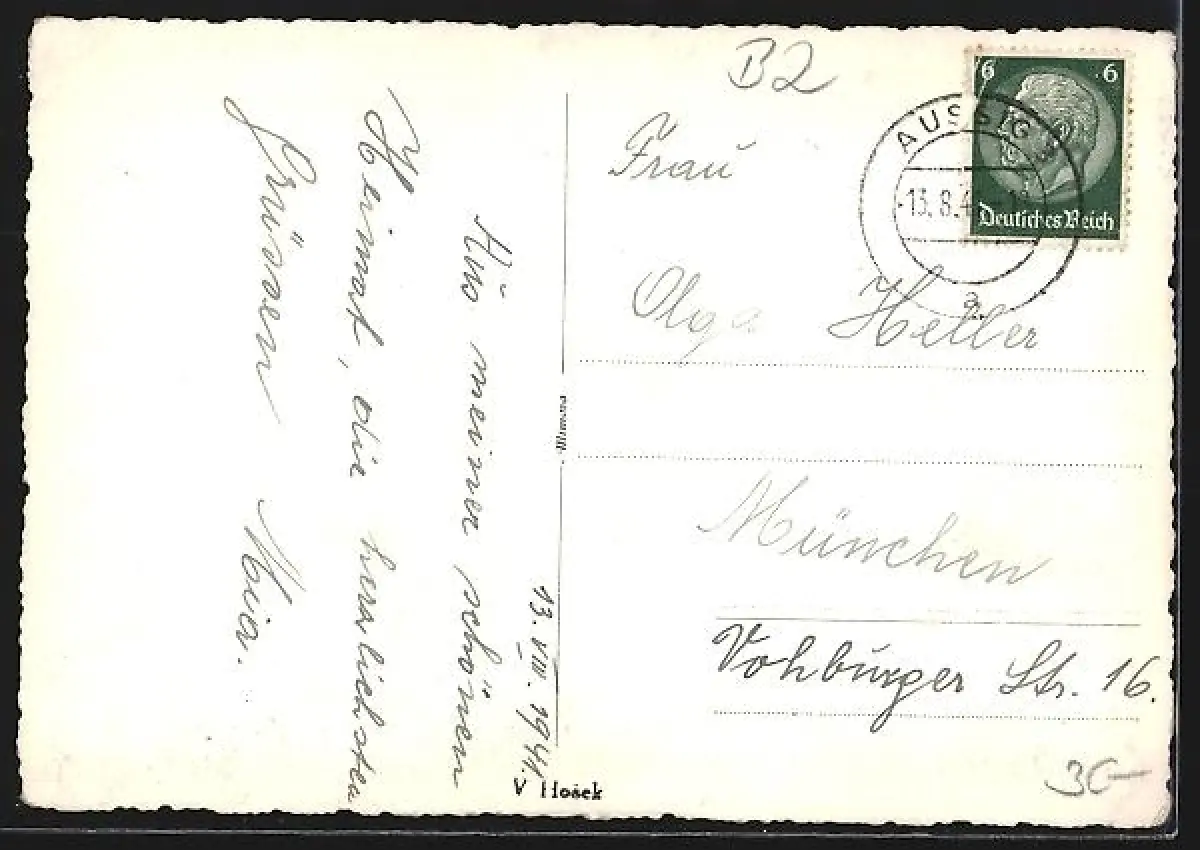 13. VIII. 1941.
Aus meiner schönen
Heimat, die herzlichsten
Grüssen Mia.
V Hošek
B2
6 6
Deutsches Reich
AUSSIG
13.8.4
a
Frau
Olga Heller
München
Vohburger Str. 16.